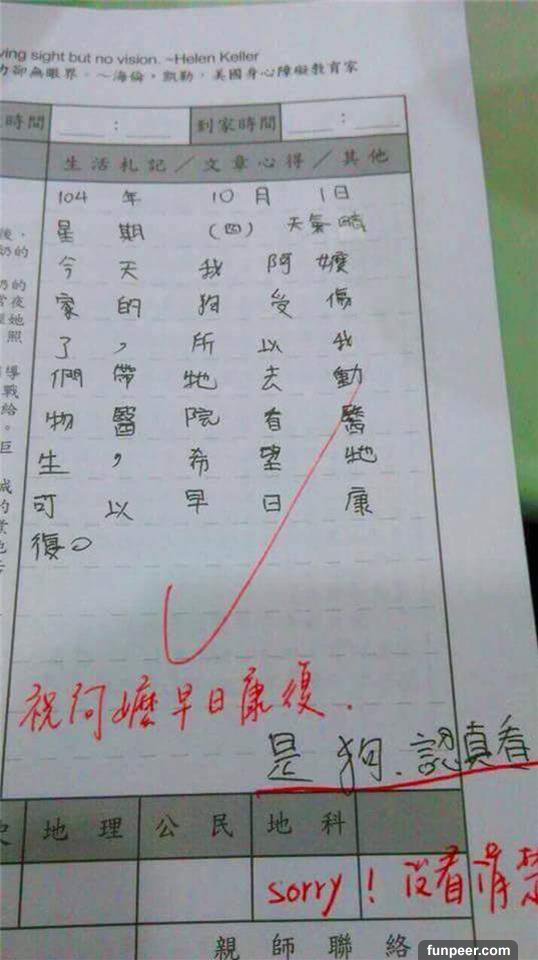 ving sight but no vision. ~Helen Keller
力卻無眼界。～海倫・凱勒，美國身心障礙教育家
時間 ： 到家時間 ：
生活札記／文章心得／其他
104 年 10 月 1日
星期 (四) 天氣晴
今天我阿嬤
家的狗受傷
了，所以我
們帶牠去動
物醫院看醫
生，希望牠
可以早日康
復。
祝阿嬤早日康復.
是狗.認真看
地理 公民 地科
sorry！沒看清楚
親師聯絡
funpeer.com